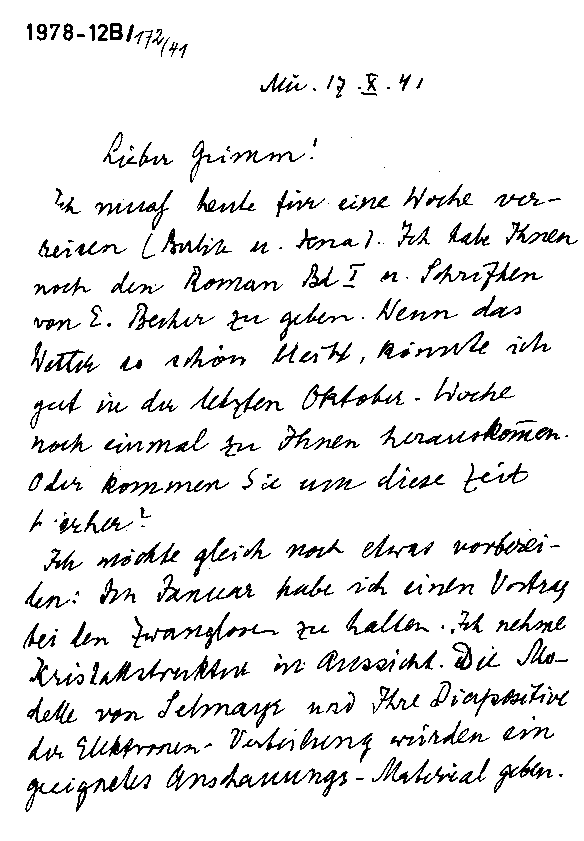 1978-12B/172/41
Mü. 17.X.41
Lieber Grimm!
Ich muß heute für eine Woche ver-
reisen (Berlin u. Jena). Ich habe Ihnen
noch den Roman Bd I u. Schriften
von E. Becher zu geben. Wenn das
Wetter so schön bleibt, könnte ich
gut in der letzten Oktober-Woche
noch einmal zu Ihnen herauskom̄en.
Oder kommen Sie um diese Zeit
hierher?
Ich möchte gleich noch etwas vorberei-
ten: Im Januar habe ich einen Vortrag
bei den Zwanglosen zu halten. Ich nehme
Kristallstruktur in Aussicht. Die Mo-
delle von Selmayr und Ihre Diapositive
der Elektronen-Verteilung würden ein
geeignetes Anschauungs-Material geben.